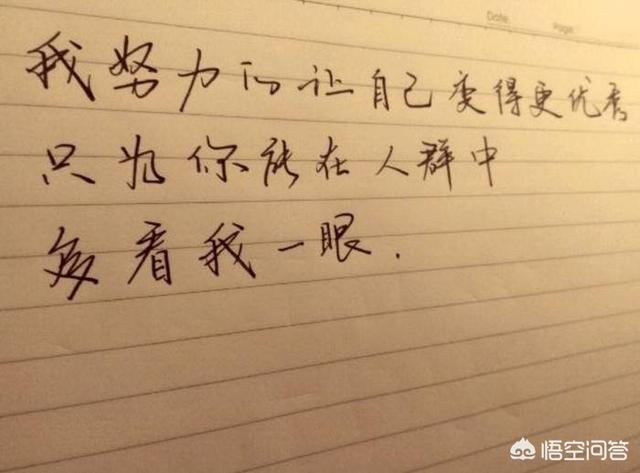 Date. Page.
我努力的让自己变得更优秀
只为你能在人群中
多看我一眼.
悟空问答